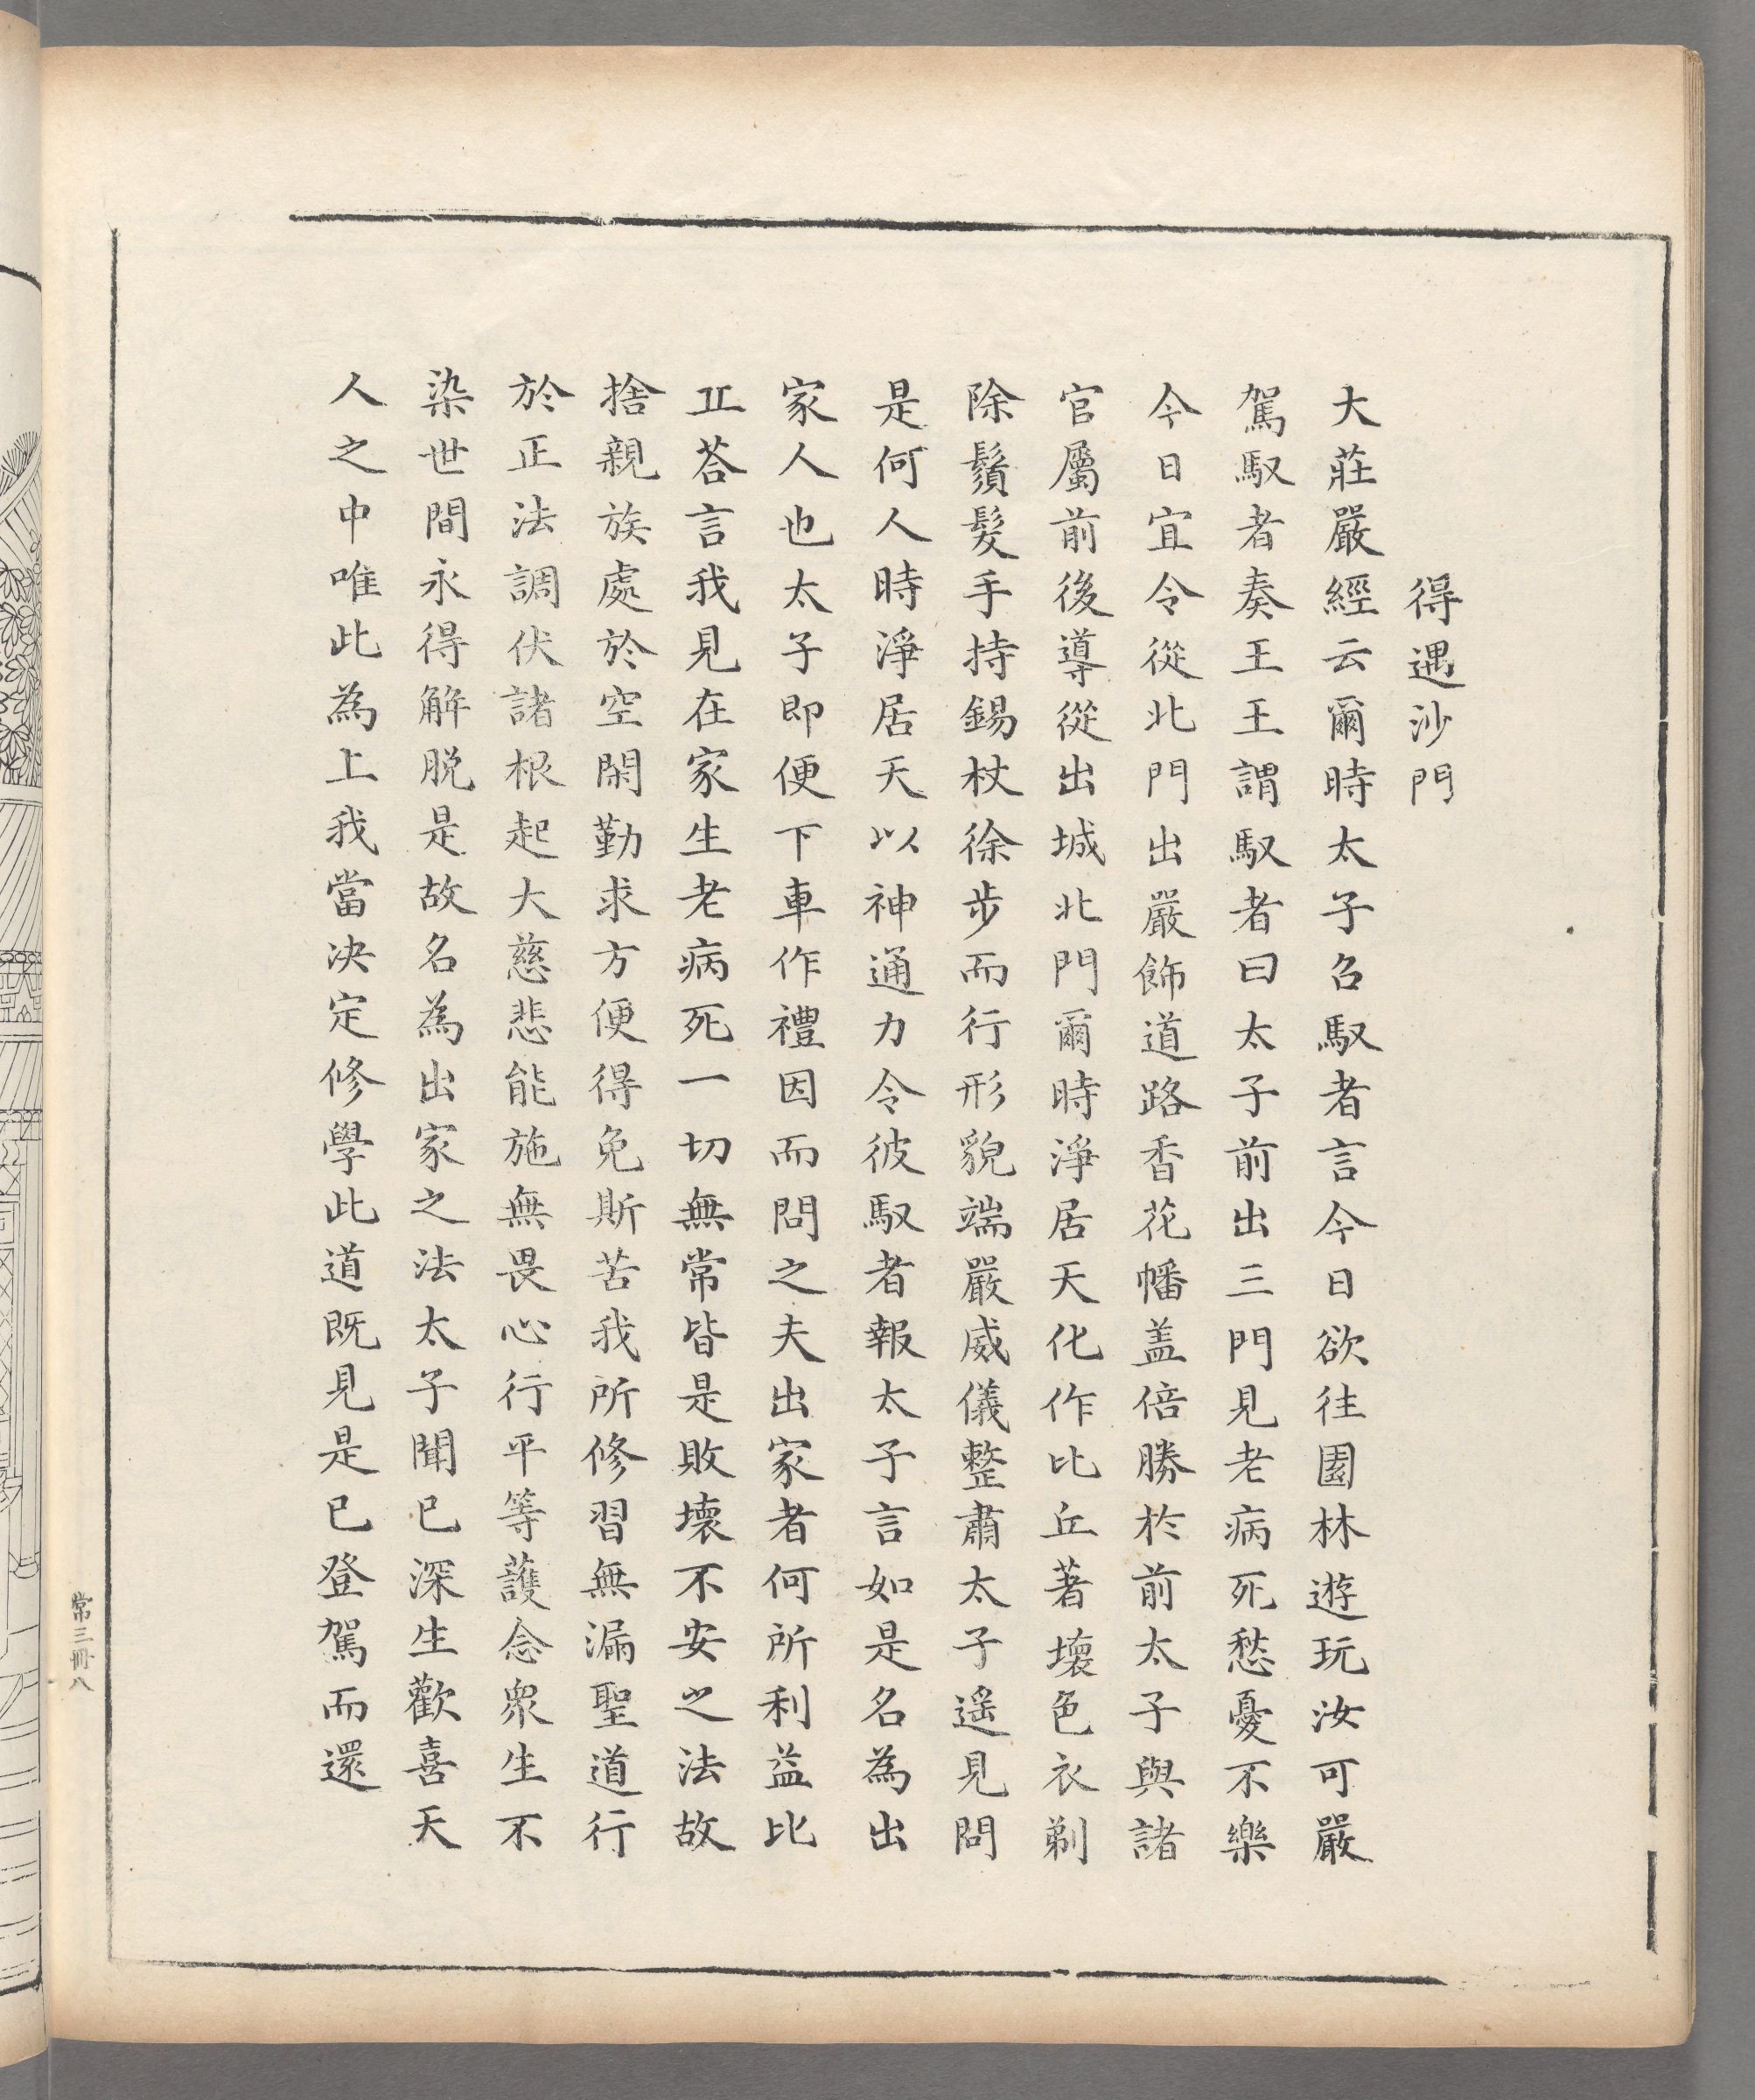 得遇沙門
大莊嚴經云爾時太子召馭者言今日欲往園林遊玩汝可嚴
駕馭者奏王王謂馭者曰太子前出三門見老病死愁憂不樂
今日宜令從北門出嚴飾道路香花幡盖倍勝於前太子與諸
官屬前後導從出城北門爾時淨居天化作比丘著壞色衣剃
除鬚髮手持錫杖徐步而行形貌端嚴威儀整肅太子遥見問
是何人時淨居天以神通力令彼馭者報太子言如是名為出
家人也太子即便下車作禮因而問之夫出家者何所利益比
丘荅言我見在家生老病死一切無常皆是敗壞不安之法故
捨親族處於空閑勤求方便得免斯苦我所修習無漏聖道行
於正法調伏諸根起大慈悲能施無畏心行平等護念衆生不
染世間永得解脱是故名為出家之法太子聞已深生歡喜天
人之中唯此為上我當决定修學此道既見是已登駕而還
常三冊八